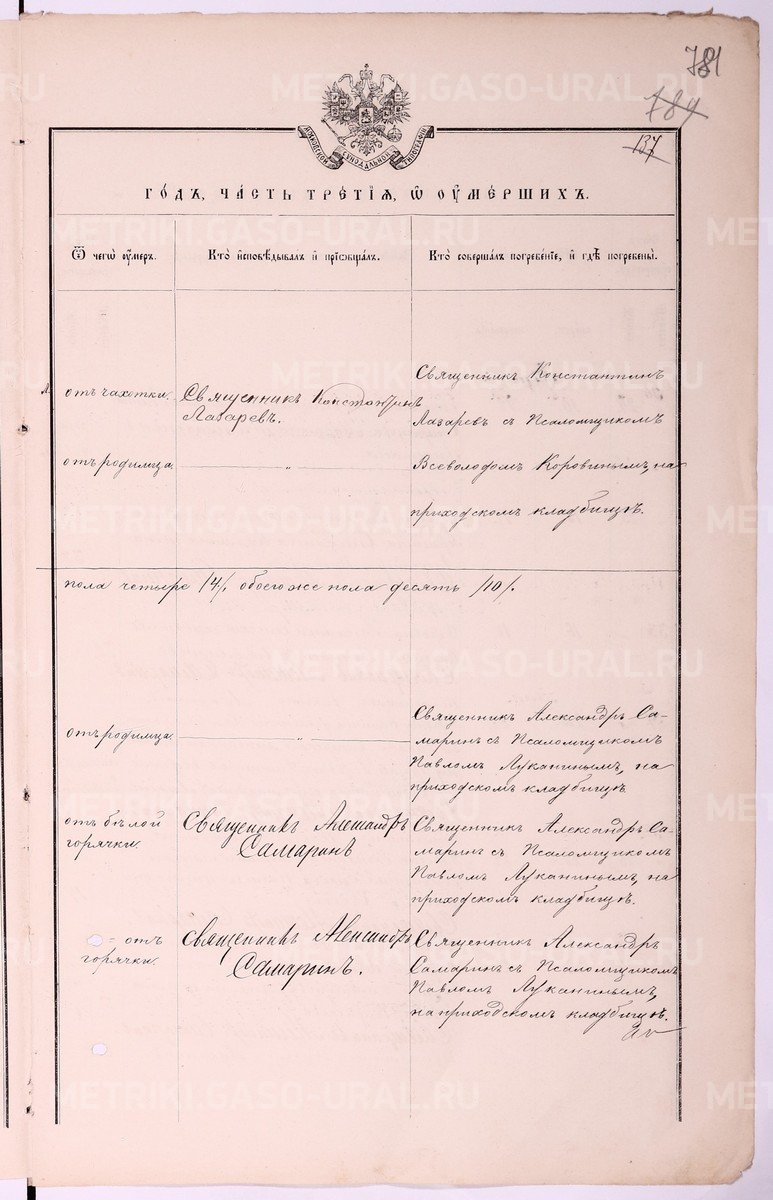 781
789
137
МОСКОВСКОЙ СѴНОДАЛЬНОЙ ТИПОГРАФІИ
ГО́ДЪ, ЧА́СТЬ ТРЕ́ТІѦ, Ѡ ОУ҆МЕ́РШИХЪ.
Ѿ чегѡ̀ оу҆́меръ.
Кто̀ и҆сповѣ́дывалъ и҆ прїѡбща́лъ.
Кто̀ соверша́лъ погребе́нїе, и҆ гдѣ̀ погребены̀.
отъ чахотки.
Священникъ Константинъ
Лазаревъ.
Священникъ Константинъ
Лазаревъ съ Псаломщикомъ
отъ родимца.
— „ —
Всеволодомъ Коровинымъ, на
приходскомъ кладбищѣ.
пола четыре /4/. обоего же пола десять /10/.
отъ родимца.
— „ —
Священникъ Александръ Са-
маринъ съ Псаломщикомъ
Павломъ Луканинымъ, на
приходскомъ кладбищѣ
отъ бѣлой
горячки.
Священникъ Александръ
Самаринъ
Священникъ Александръ Са-
маринъ съ Псаломщикомъ
Павломъ Луканинымъ, на
приходскомъ кладбищѣ.
отъ
горячки.
Священникъ Александръ
Самаринъ.
Священникъ Александръ
Самаринъ съ Псаломщикомъ
Павломъ Луканинымъ,
на приходскомъ кладбищѣ.
METRIKI.GASO-URAL.RU